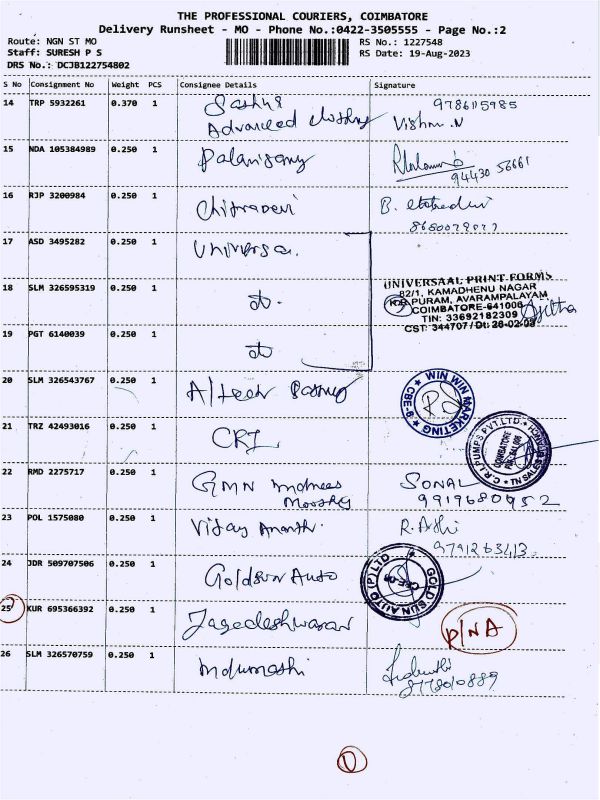 THE PROFESSIONAL COURIERS, COIMBATORE
Delivery Runsheet - MO - Phone No.:0422-3505555 - Page No.:2
Route: NGN ST MO RS No.: 1227548
Staff: SURESH P S RS Date: 19-Aug-2023
DRS No.: DCJB122754802
S No Consignment No Weight PCS Consignee Details Signature
14 TRP 5932261 0.370 1 9786115985
Advanced Vishnu.N
15 NDA 105384989 0.250 1 Palanisamy
94430 56661
16 RJP 3200984 0.250 1 Chitradevi B.
17 ASD 3495282 0.250 1 Universa.
18 SLM 326595319 0.250 1 do.
UNIVERSAAL PRINT FORMS
62/1, KAMADHENU NAGAR
PURAM, AVARAMPALAYAM
COIMBATORE-641006
TIN: 33692182309
CST: 344707 / Dt: 26-02-09
19 PGT 6140039 0.250 1 do
20 SLM 326543767 0.250 1 WIN WIN MARKETING CBE-9
21 TRZ 42493016 0.250 1 CRI C.R.I. PUMPS PVT.LTD. COIMBATORE TN SALES BRANCH
22 RMD 2275717 0.250 1 GMN SONAL
9919680952
23 POL 1575080 0.250 1 Vijay Ananth. R.
9791263413.
24 JDR 509707506 0.250 1 Goldsun Auto GOLD SUN AUTO (P) LTD
25 KUR 695366392 0.250 1 Jagedeshwaran P/NA
26 SLM 326570759 0.250 1 Indumathi
8778010889